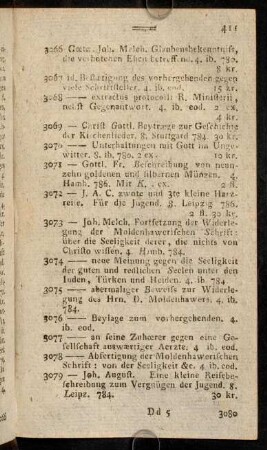 411
3066 Goeze Joh. Melch. Glaubensbekenntniss,
die verbotenen Ehen betreff. no. 4. ib. 780.
8 kr.
3067 id. Bestätigung des vorhergehenden gegen
viele Schriftsteller. 4. ib. eod. 15 kr.
3068 — extractus protocolli R. Ministerii
nebst Gegenantwort. 4. ib. eod. 2 ex.
4 kr.
3069 — Christ. Gottl. Beytræge zur Geschichte
der Kirchenlieder. 8. Stuttgard 784. 30 kr.
3070 — Unterhaltungen mit Gott im Unge-
witter. 8. ib. 780. 2 ex. 10 kr.
3071 — Gottl. Fr. Beschreibung von neun-
zehn goldenen und silbernen Münzen. 4.
Hamb. 786. Mit K. 1 ex. 2 fl.
3072 — J. A. C. zwote und 3te kleine Harz-
reise. Für die Jugend. 8. Leipzig 786.
2 fl. 30 kr.
3073 — Joh. Melch. Fortsetzung der Widerle-
gung der Moldenhawerischen Schrift:
über die Seeligkeit derer, die nichts von
Christo wissen. 4. Hamb. 784.
3074 — neue Meinung gegen die Seeligkeit
der guten und redlichen Seelen unter den
Juden, Türken und Heiden. 4. 784
3075 — abermaliger Beweiss zur Widerle-
gung des Hrn. D. Moldenhawers. 4. ib.
784.
3076 — Beylage zum vorhergehenden. 4.
ib. eod.
3077 — an seine Zuhœrer gegen eine Ge-
sellschaft auswærtiger Aerzte. 4 ib. eod.
3078 — Abfertigung der Moldenhawerischen
Schrift: von der Seeligkeit &c. 4. ib. eod.
3079 — Joh. August. Eine kleine Reisebe-
schreibung zum Vergnügen der Jugend. 8.
Leipz. 784. 30 kr.
Dd 5 3080